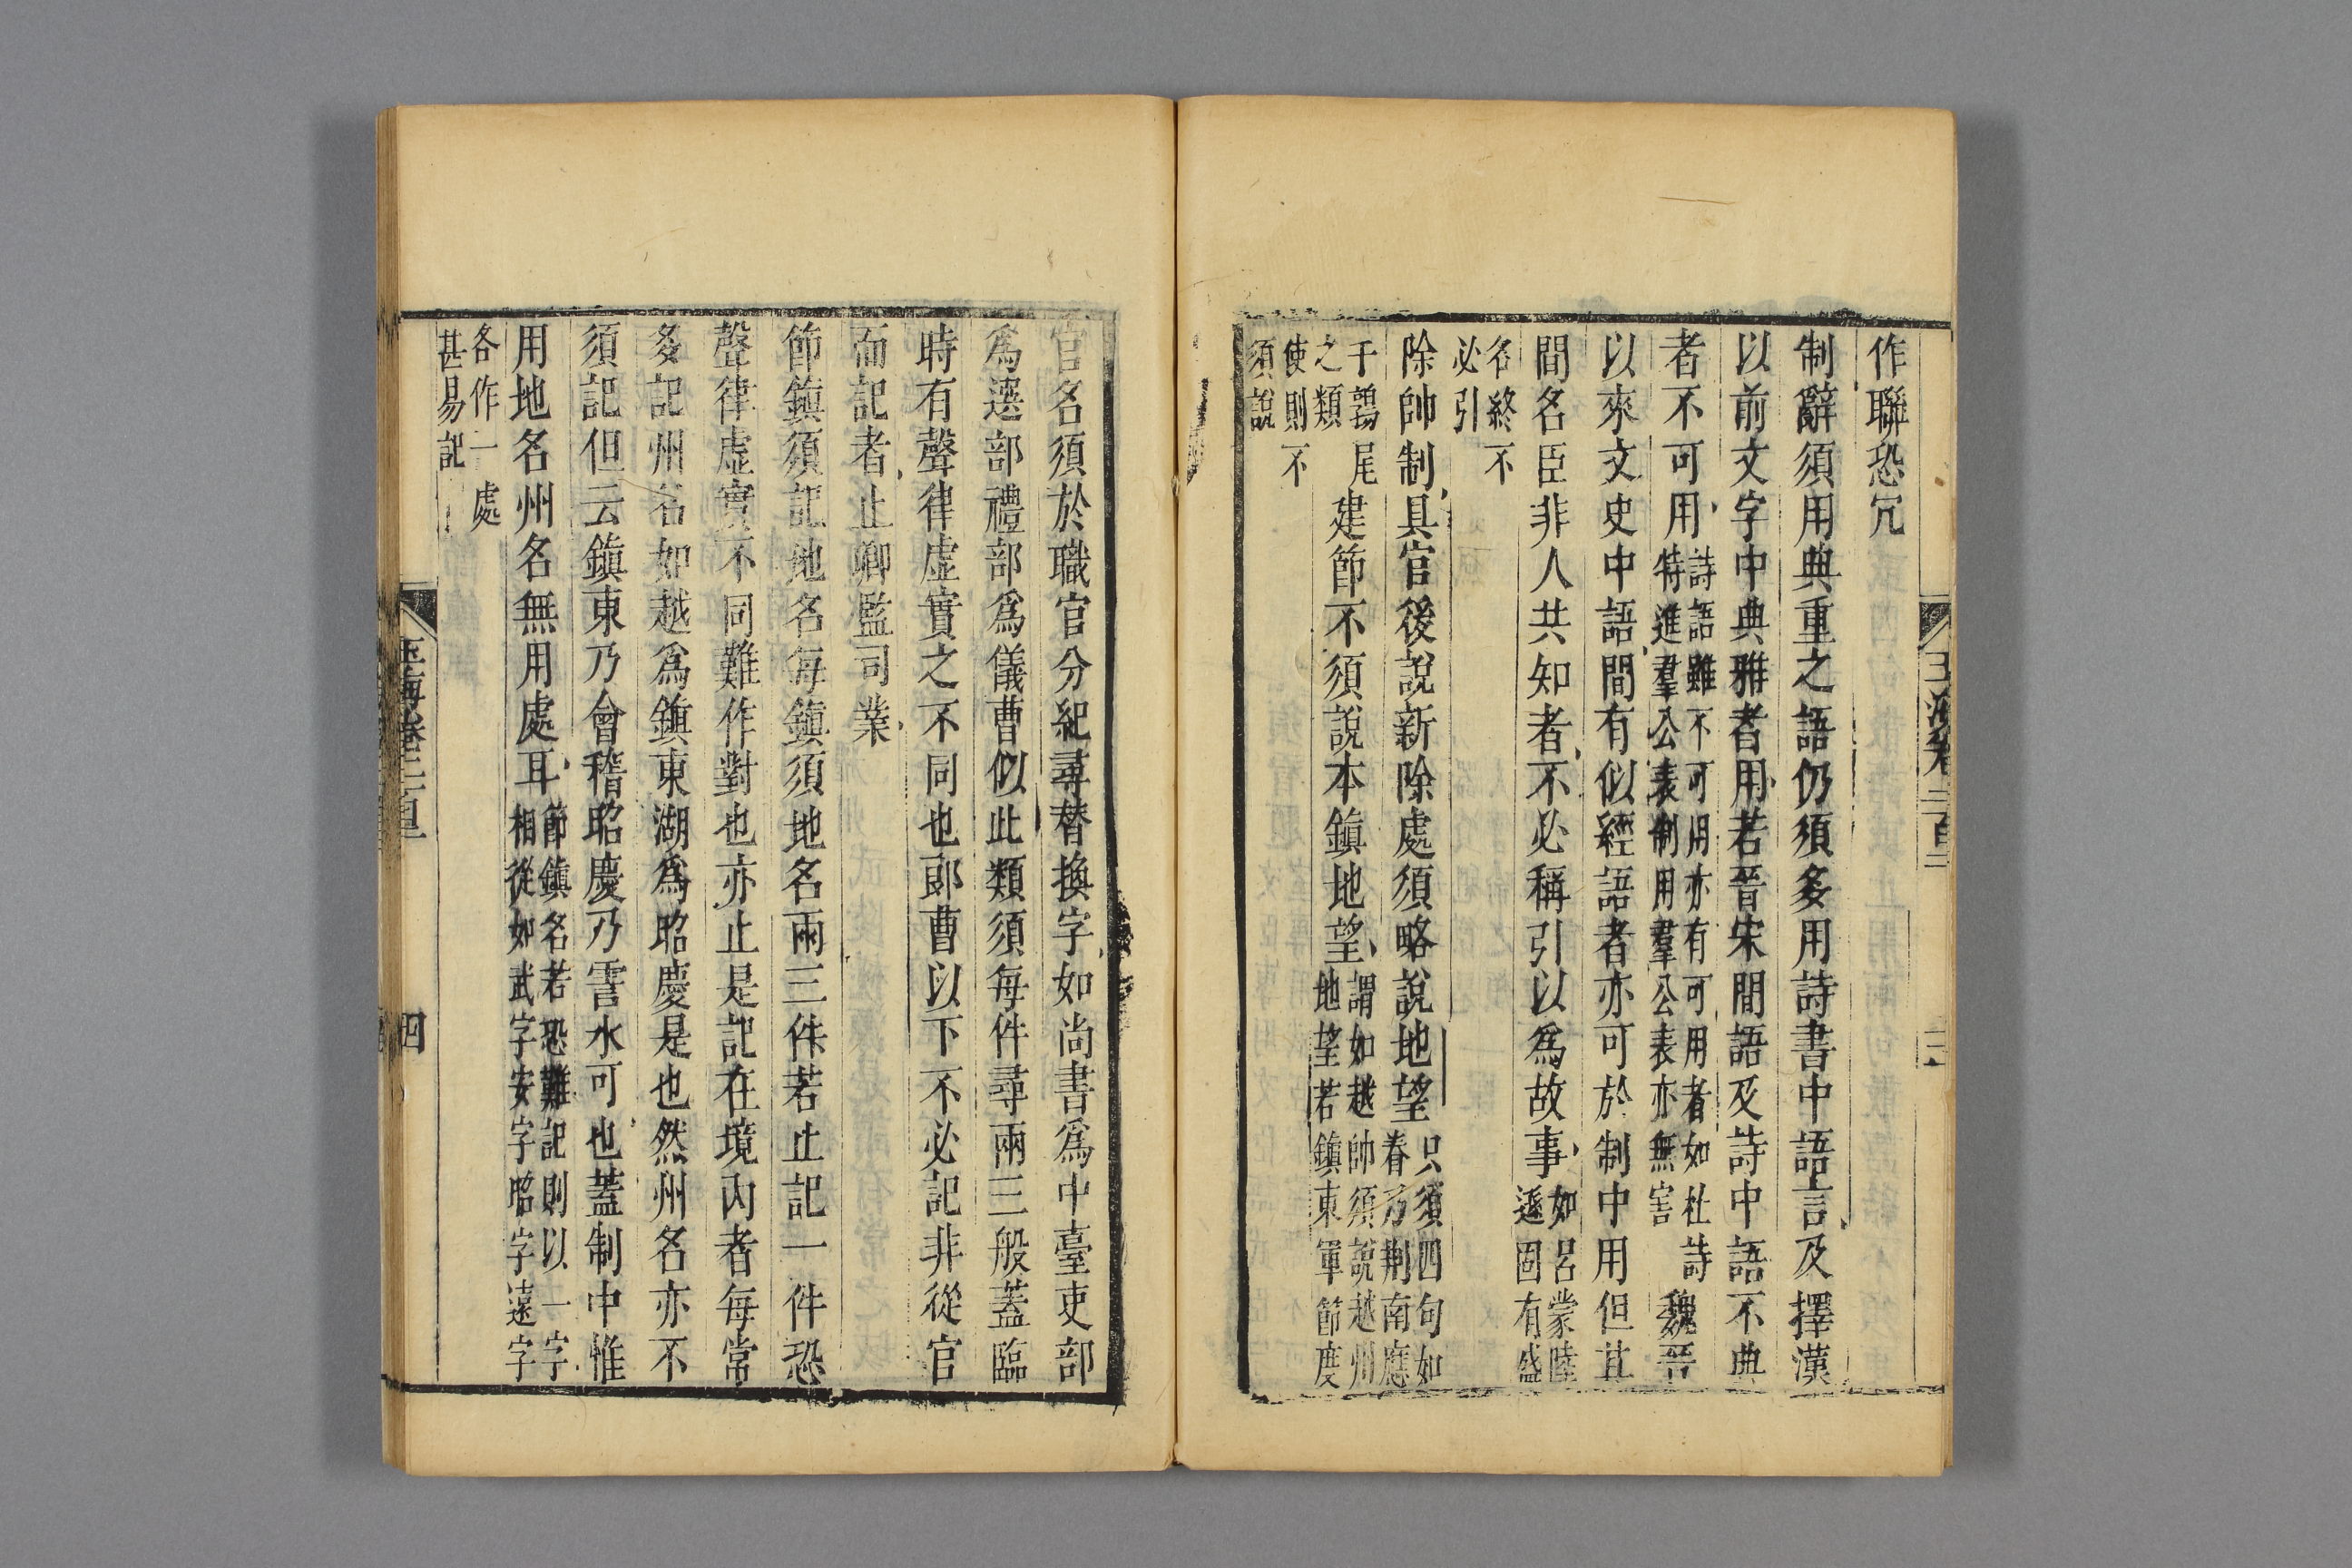 作聯恐冗
制辭須用典重之語仍須多用詩書中語言及擇漢
以前文字中典雅者用若晉宋間語及詩中語不典
者不可用詩語雖不可用亦有可用者如杜詩
特進羣公表制用羣公表亦無害魏晉
以來文史中語間有似經語者亦可於制中用但其
間名臣非人共知者不必稱引以為故事如呂蒙陸
遜固有盛
名終不
必引
除帥制具官後說新除處須略說地望只須四句如
春乃荆南應
于鶉尾
之類建節不須說本鎮地望謂如越帥須說越州
地望若鎮東軍節度
使則不
須說
官名須於職官分紀尋替換字如尚書為中臺吏部
為選部禮部為儀曹似此類須每件尋兩三般蓋臨
時有聲律虛實之不同也郎曹以下不必記非從官
而記者止卿監司業
節鎮須記地名每鎮須地名兩三件若止記一件恐
聲律虛實不同難作對也亦止是記在境內者每常
多記州名如越為鎮東湖為昭慶是也然州名亦不
須記但云鎮東乃會稽昭慶乃霅水可也蓋制中惟
用地名州名無用處耳節鎮名若恐難記則以一字
相從如武字安字昭字遠字
各作一處
甚易記
玉海卷二百二
四